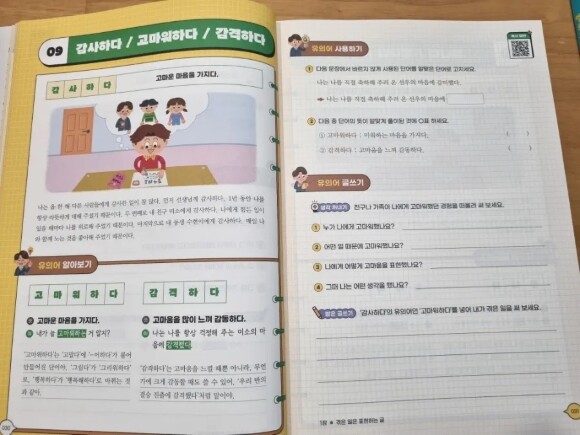 09 감사하다 / 고마워하다 / 감격하다
감사하다
고마운 마음을 가지다.
나는 올 한 해 다른 사람들에게 감사한 일이 참 많다. 먼저 선생님께 감사하다. 1년 동안 나를
항상 따뜻하게 대해 주셨기 때문이다. 두 번째로 내 친구 미소에게 감사하다. 나에게 힘든 일이
있을 때마다 나를 위로해 주었기 때문이다. 마지막으로 내 동생 수현이에게 감사하다. 매일 나
와 함께 노는 것을 좋아해 주었기 때문이다.
유의어 알아보기
고마워하다
고마운 마음을 가지다.
내가 늘 고마워하는 거 알지?
'고마워하다'는 '고맙다'에 '-어하다'가 붙어
만들어진 단어야. '그립다'가 '그리워하다'
로, '행복하다'가 '행복해하다'로 바뀌는 것
과 같아.
감격하다
고마움을 많이 느껴 감동하다.
나는 나를 항상 걱정해 주는 미소의 마
음에 감격했다.
'감격하다'는 고마움을 느낄 때뿐 아니라, 무언
가에 크게 감동할 때도 쓸 수 있어. '우리 반의
결승 진출에 감격했다'처럼 말이야.
유의어 사용하기
1 다음 문장에서 바르지 않게 사용된 단어를 알맞은 단어로 고치세요.
나는 나를 직접 축하해 주러 온 선우의 마음에
2 다음 중 단어의 뜻이 알맞게 풀이된 것에 O표 하세요.
① 고마워하다 : 미워하는 마음을 가지다. ( )
② 감격하다 : 고마움을 느껴 감동하다. ( )
유의어 글쓰기
친구나 가족이 나에게 고마워했던 경험을 떠올려 써 보세요.
1 누가 나에게 고마워했나요?
2 어떤 일 때문에 고마워했나요?
3 나에게 어떻게 고마움을 표현했나요?
4 그때 나는 어떤 생각을 했나요?
짧은 글쓰기 '감사하다'의 유의어인 '고마워하다'를 넣어 내가 겪은 일을 써 보세요.
1장 ★ 겪은 일을 표현하는 글